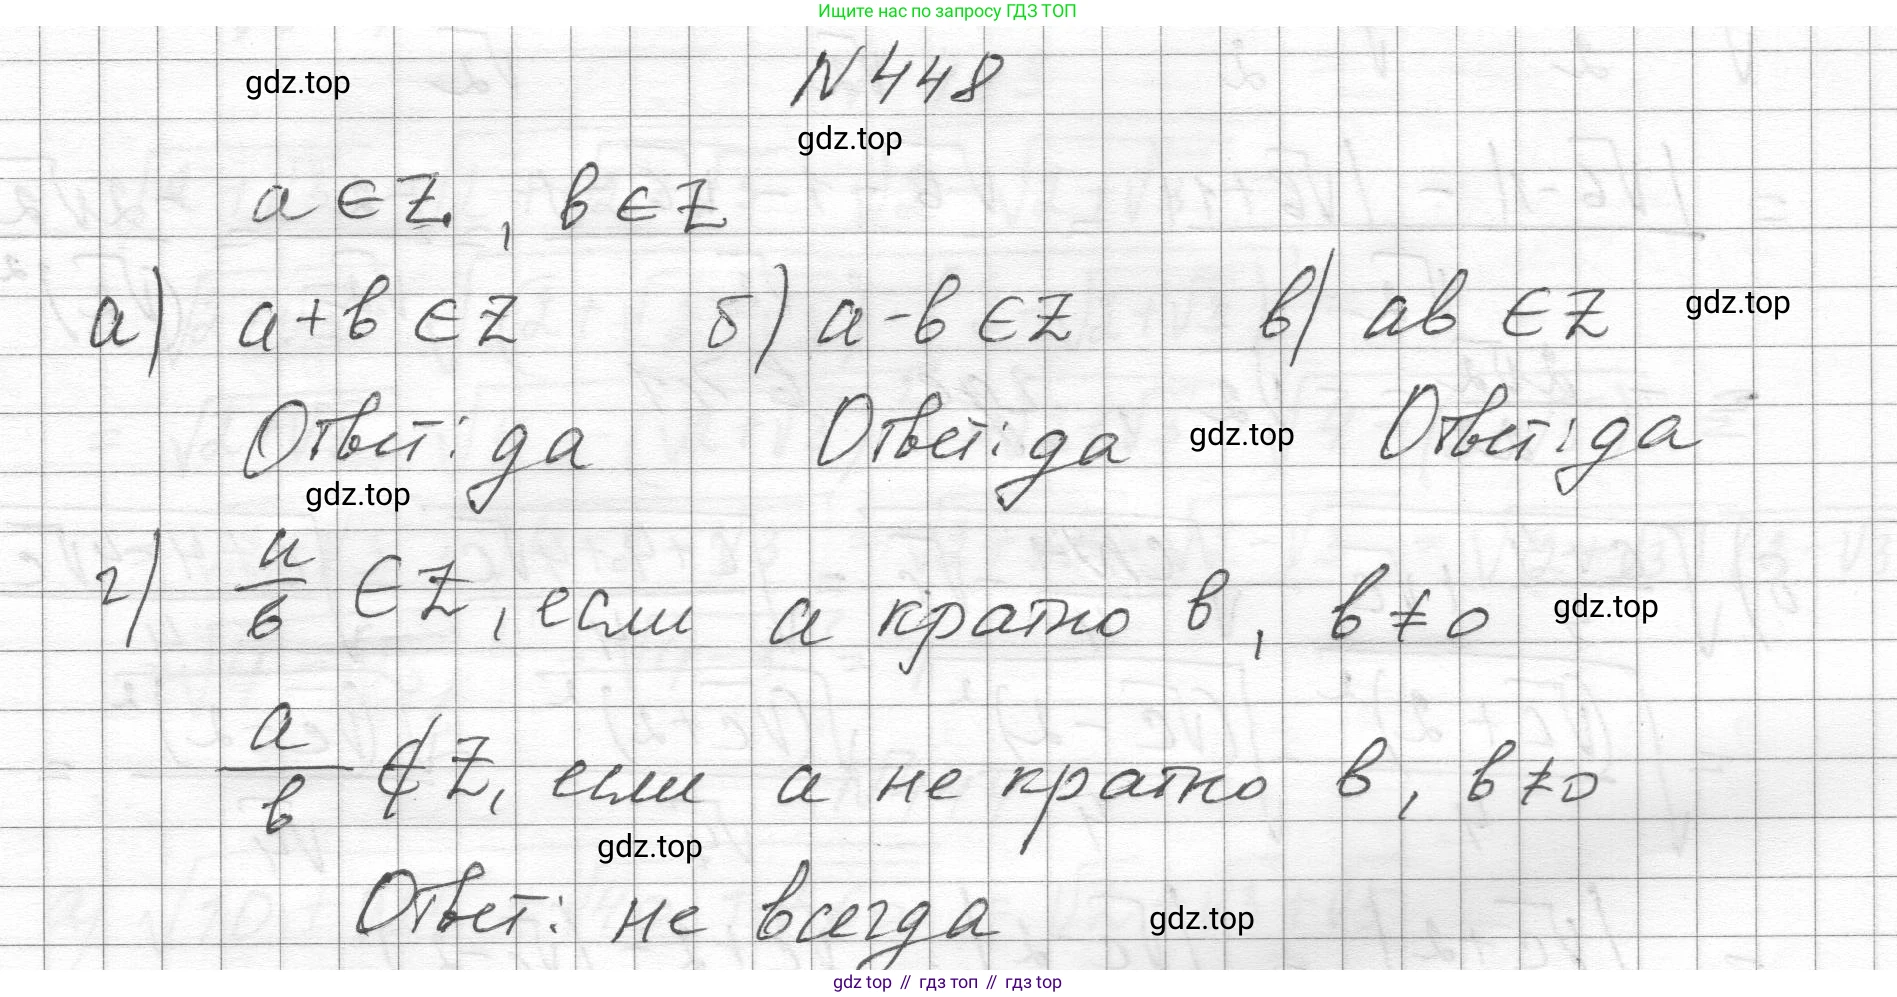 Ищите нас по запросу ГДЗ ТОП
N 448
gdz.top
gdz.top
a ∈ Z, b ∈ Z
а) a+b ∈ Z б) a-b ∈ Z в) ab ∈ Z gdz.top
Ответ: да Ответ: да gdz.top Ответ: да
gdz.top
г) a/b ∈ Z, если a кратно b, b ≠ 0 gdz.top
a/b ∉ Z, если a не кратно b, b ≠ 0
gdz.top
Ответ: не всегда gdz.top
gdz top // гдз топ // гдз top